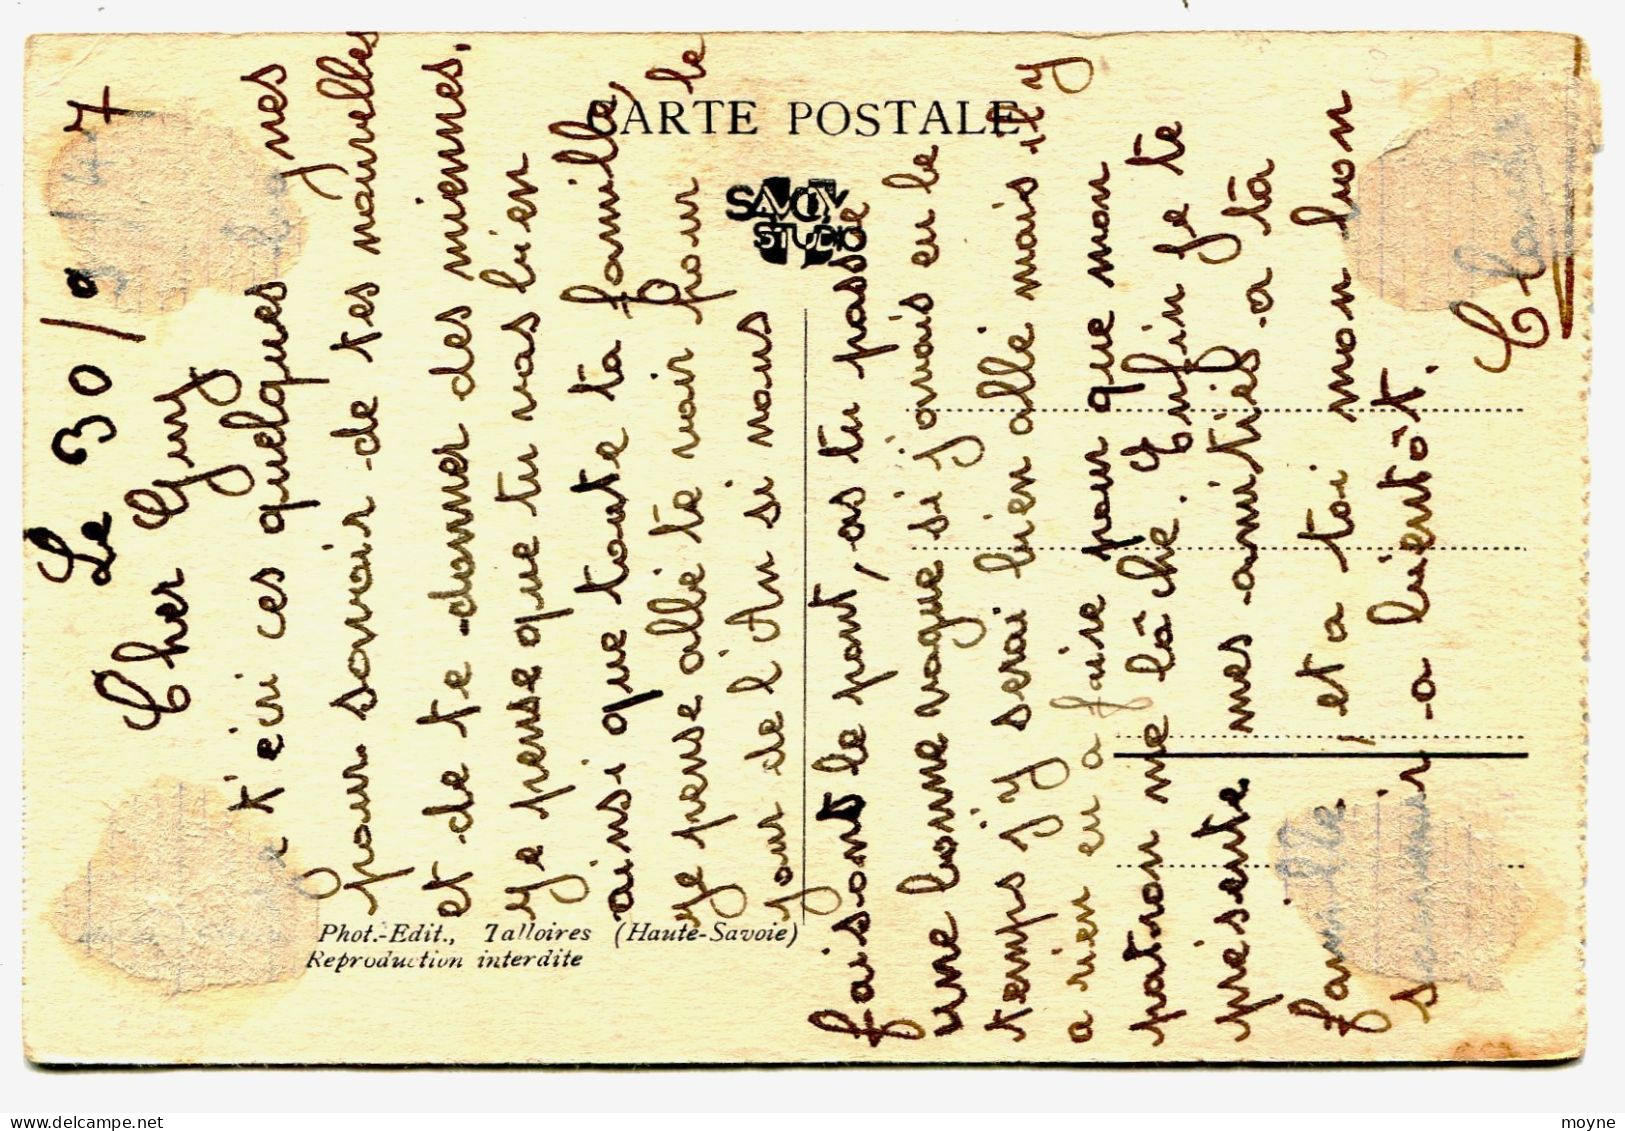 CARTE POSTALE
SAVOY
STUDIO
Phot.-Edit., Talloires (Haute-Savoie)
Reproduction interdite
Le 30/9 47
Cher Guy
t'écri ces quelques lignes
pour savoir de tes nouvelles
et de te donner des miennes.
Je pense que tu vas bien
ainsi que toute ta famille,
Je pense allé te voir pour le
jour de l'An si nous
faisont le pont, as tu passée
une bonne vague si j'onais eu le
temps j'y serai bien allé mais il y
a rien eu a faire pour que mon
patron me lâche. Enfin je te
présente mes amitiés a ta
famille, et a toi mon bon
souvenir a bientôt.
Claude
moyne